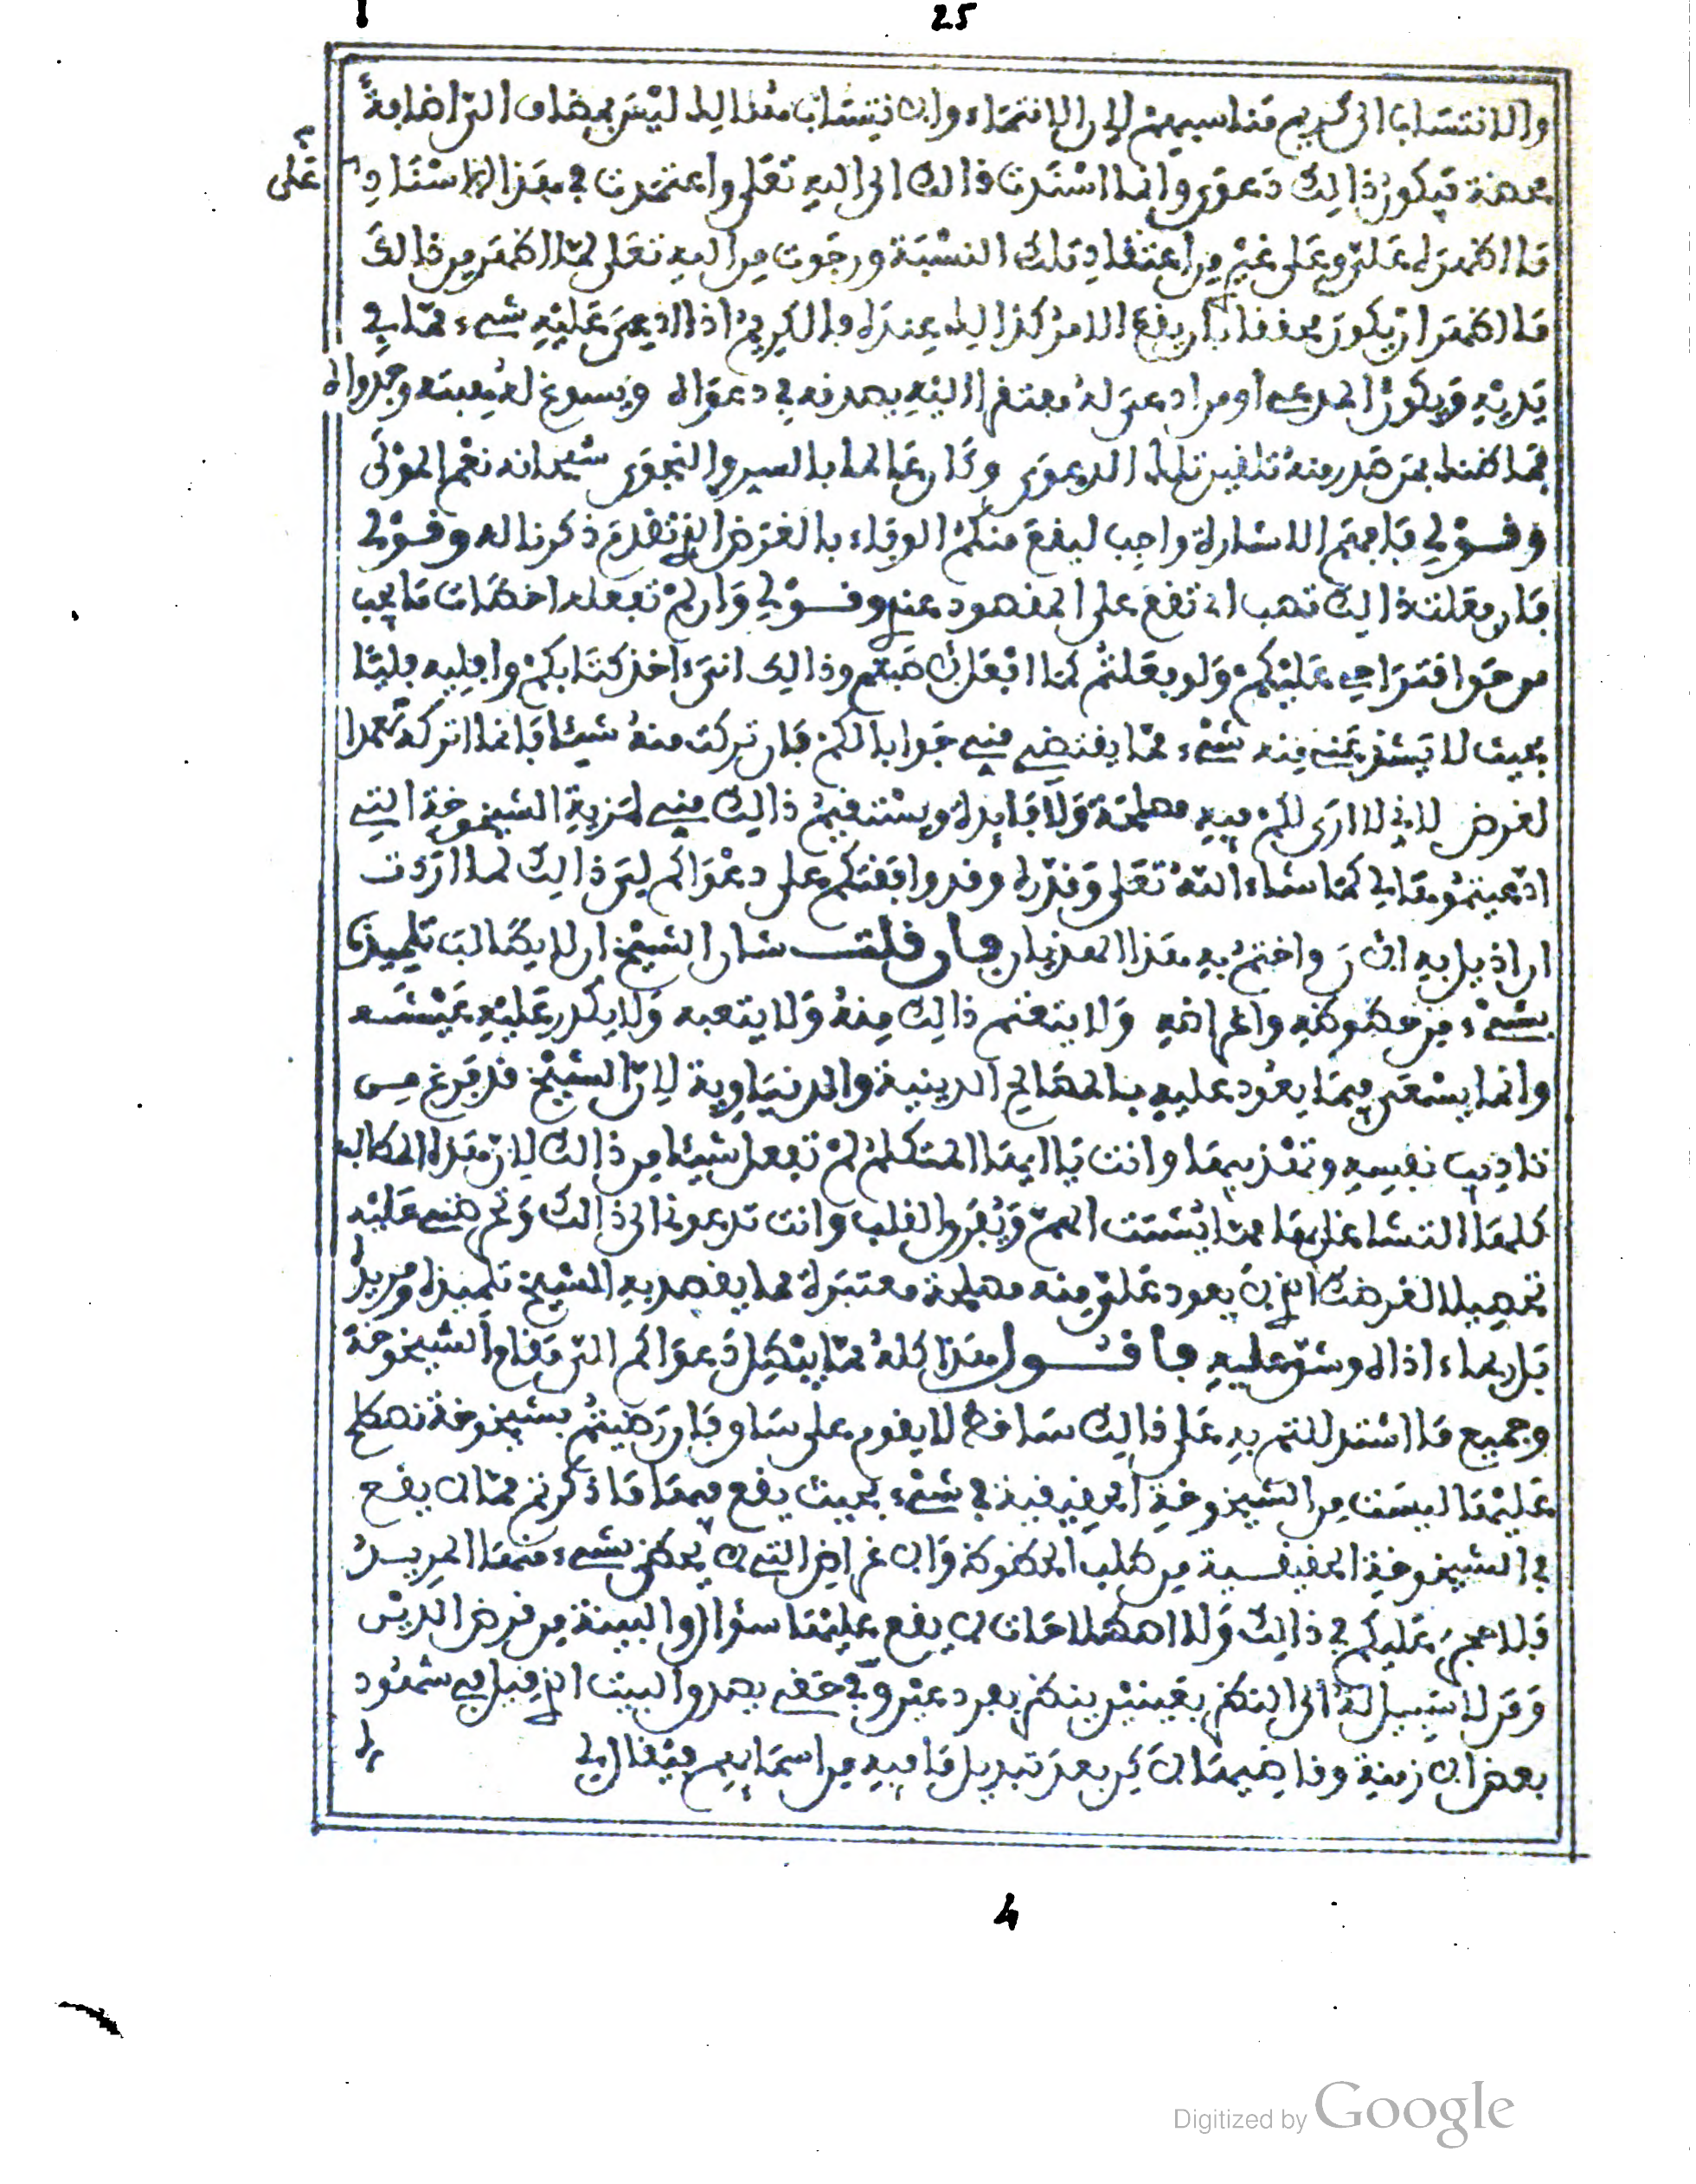 25
والانتساب الى كريم مناسبهم لان الانتماء والانتساب هنالك ليس بمضاف الى اضافة
محضة فيكون ذالك دعوى وانما استندت فى ذالك الى الله تعلى واعتمدت فى هذا الاستناد
على
ما اظهره علي وعلى غير من اعتقاد تلك النسبة ورجوت من الله تعلى لما اظهر من ذالك
ما اظهر ان يكون محققا بان يقع الامر كذالك عنده والكريم اذا ادعي عليه شيء مما في
يديه ويكون المدعي او من ادعى له مفتقرا اليه يصدقه في دعواه ويسوغ له هبته وجدواه
فما ظنك بمن صدر منه تلقين تلك الدعوى وكان عالما بالسر والنجوى سبحانه نعم المولى
وقولي فافهم الاشارة واجب ليقع منكم الوفاء بالغرض الذي تقدم ذكرنا له وقولي
فان فعلت ذالك تصب اي تقع على المقصود عندي وقولي وان لم تفعله اخطات ما يجب
من حق اقتراحي عليكم ولو فعلتم كما افعل صنعتم وذالك انني ءاخذ كتابكم وافليه فليا
بحيث لا يشذ عني منه شيء مما يقتضي مني جوابا لكم فان تركت منه شيئا فانما اتركه عمدا
لغرض لاني لا ارى لكم فيه مصلحة ولا فايدة ويستقيم ذالك مني لمزية الشيخوخة التي
ادعيتموها لي كما شاء الله تعلى وقدره وقد وافقتكم على دعواكم ليتم ذالك لما اردت
ان اذيل به الان واختم به هذا الهذيان فان قلت شان الشيخ ان لا يطالب تلميذه
بشيء من حظوظه واغراضه ولا يتعنته ذالك منه ولا يتعبه ولا يكدر عليه عيشه
وانما يسعى فيما يعود عليه بالمصالح الدينية والدنياوية لان الشيخ قد فرغ من
تاديب نفسه وتهذيبها وانت يا ايها المتكلم لم تفعل شيئا من ذالك لان هذه المطالب
كلها التشاغل بها مما يشتت الهم ويفرق القلب وانت تدعونا الى ذالك وتحرضنا عليه
تحصيلا لغرضك الذي لا يعود علي منه مصلحة معتبرة مما يقصد به الشيخ تلميذه ومريده
بل ربما ءاذاه وشق عليه فاقول هذا كله مما يبطل دعواكم التي مقام الشيخوخة
وجميع ما استدللتم به على ذالك ساقط لا يقوم على ساق فان رضيتم بشيخوخة نصطلح
عليها ليست من الشيخوخة الحقيقية في شيء بحيث يقع فيها ما ذكرتم مما لا يقع
في الشيخوخة الحقيقية من طلب الحظوظ والاغراض التي لا يحظى بشيء منها المريد
فلا حجر عليكم في ذالك ولا اصطلاحات لا يقع عليها سؤال والبينة من فرض الدين
وقد لا سبيل له الى النطق بعينين ينطق بعد عين وفي حقه يصدق البيت الذي قيل في شهود
بعض الازمنة وقاضيها لاكن بعد تبديل ما فيه من اسمايهم فيقال لي
4
Digitized by Google